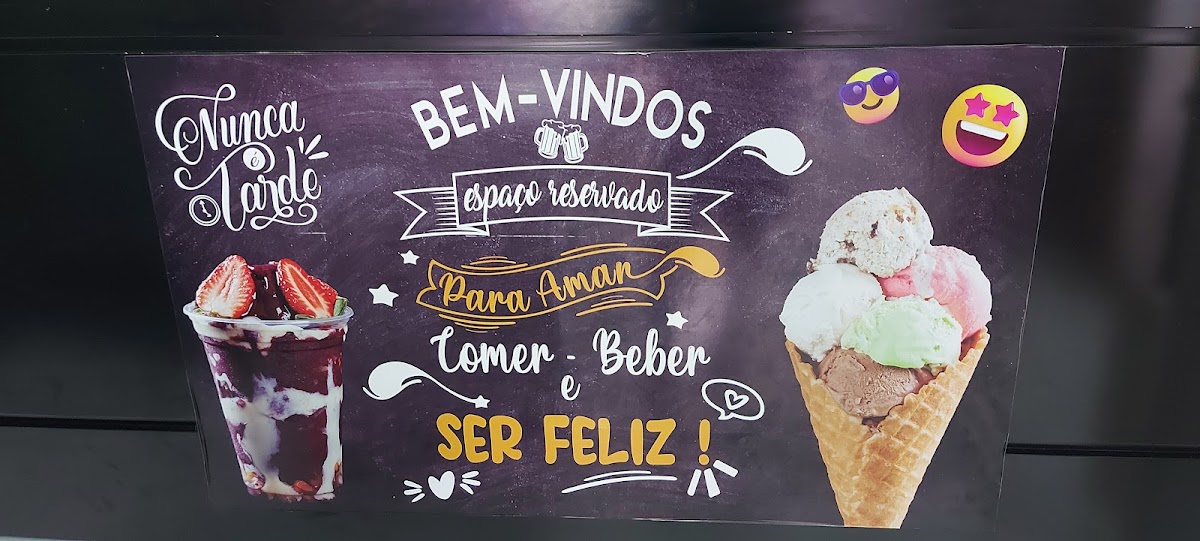 Nunca
é
Tarde
BEM-VINDOS
espaço reservado
Para Amar
Comer - Beber
e
SER FELIZ !